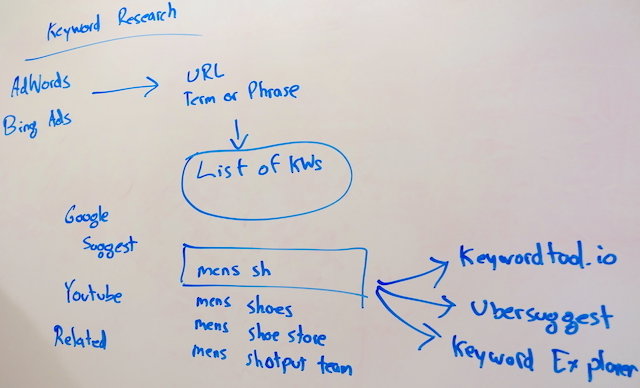 Keyword Research
AdWords
Bing Ads
URL
Term or Phrase
List of KWs
Google
Suggest
Youtube
Related
mens sh
mens shoes
mens shoe store
mens shotput team
Keywordtool.io
Ubersuggest
Keyword Explorer